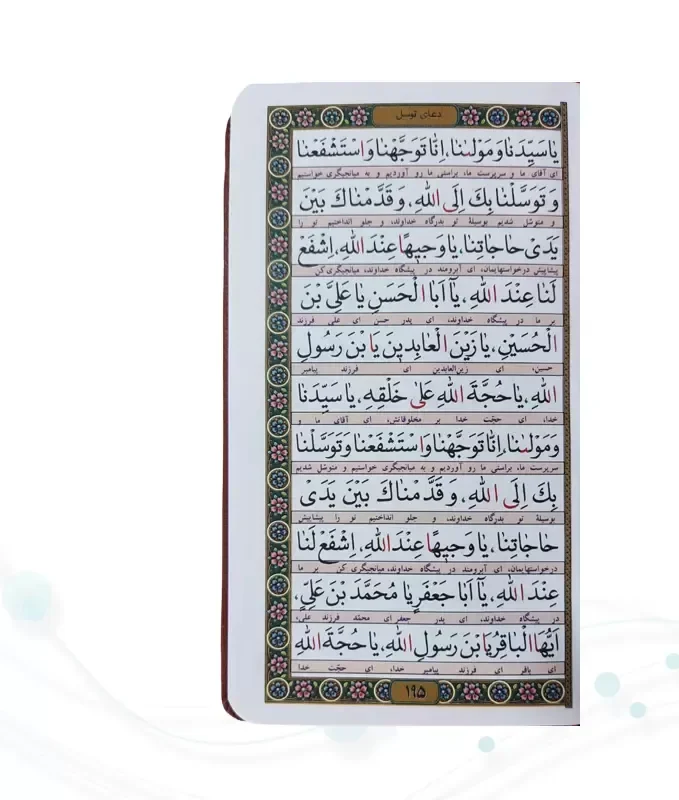 دعای توسل
یٰا سَیِّدَنٰا وَ مَوْلٰینٰا، اِنّٰا تَوَجَّهْنٰا وَ اسْتَشْفَعْنٰا
ای آقای ما و سرپرست ما، براستی ما رو آوردیم و به میانجیگری خواستیم
وَ تَوَسَّلْنٰا بِكَ اِلَی اللهِ، وَ قَدَّمْنٰاكَ بَیْنَ
و متوسّل شدیم بوسیلهٔ تو بدرگاه خداوند، و جلو انداختیم تو را
یَدَیْ حٰاجٰاتِنٰا، یٰا وَجیهًا عِنْدَ اللهِ، اِشْفَعْ
پیشاپیش درخواستهایمان، ای آبرومند در پیشگاه خداوند، میانجیگری کن
لَنٰا عِنْدَ اللهِ، یٰٓا اَبَا الْحَسَنِ یٰا عَلِیَّ بْنَ
بر ما در پیشگاه خداوند، ای پدر حسن ای علی فرزند
الْحُسَیْنِ، یٰا زَیْنَ الْعٰابِدینَ یَا بْنَ رَسُولِ
حسین، ای زین‌العابدین ای فرزند پیامبر
اللهِ، یٰا حُجَّةَ اللهِ عَلیٰ خَلْقِهِ، یٰا سَیِّدَنٰا
خدا، ای حجّت خدا بر مخلوقاتش، ای آقای ما و
وَ مَوْلٰینٰا، اِنّٰا تَوَجَّهْنٰا وَ اسْتَشْفَعْنٰا وَ تَوَسَّلْنٰا
سرپرست ما، براستی ما رو آوردیم و به میانجیگری خواستیم و متوسّل شدیم
بِكَ اِلَی اللهِ، وَ قَدَّمْنٰاكَ بَیْنَ یَدَیْ
بوسیلهٔ تو بدرگاه خداوند، و جلو انداختیم تو را پیشاپیش
حٰاجٰاتِنٰا، یٰا وَجیهًا عِنْدَ اللهِ، اِشْفَعْ لَنٰا
درخواستهایمان، ای آبرومند در پیشگاه خداوند، میانجیگری کن بر ما
عِنْدَ اللهِ، یٰٓا اَبٰا جَعْفَرٍ یٰا مُحَمَّدَ بْنَ عَلِیٍّ،
در پیشگاه خداوند، ای پدر جعفر ای محمّد فرزند علی،
اَیُّهَا الْبٰاقِرُ یَا بْنَ رَسُولِ اللهِ، یٰا حُجَّةَ اللهِ
ای باقر ای فرزند پیامبر خدا، ای حجّت خدا
۱۹۵